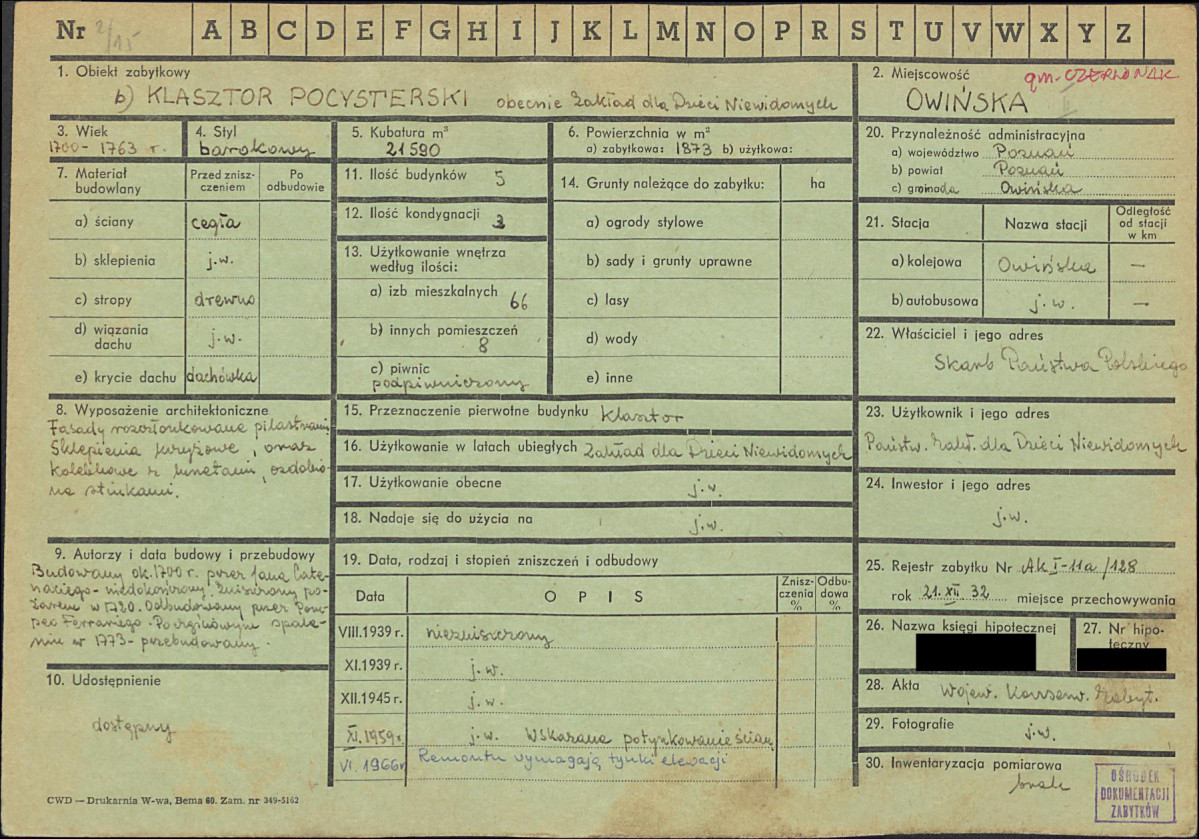 Nr 2/15 A B C D E F G H I J K L M N O P R S T U V W X Y Z
1. Obiekt zabytkowy
b) KLASZTOR POCYSTERSKI obecnie Zakład dla Dzieci Niewidomych
2. Miejscowość gm. CZERWONAK
OWIŃSKA
3. Wiek
1700 - 1763 r.
4. Styl
barokowy
5. Kubatura m³
21590
6. Powierzchnia w m²
a) zabytkowa: 1873 b) użytkowa:
7. Materiał budowlany
Przed zniszczeniem
Po odbudowie
a) ściany cegła
b) sklepienia j.w.
c) stropy drewno
d) wiązania dachu j.w.
e) krycie dachu dachówka
11. Ilość budynków 5
12. Ilość kondygnacji 3
13. Użytkowanie wnętrza
według ilości:
a) izb mieszkalnych 66
b) innych pomieszczeń
8
c) piwnic
podpiwniczony
14. Grunty należące do zabytku: ha
a) ogrody stylowe
b) sady i grunty uprawne
c) lasy
d) wody
e) inne
20. Przynależność administracyjna
a) województwo Poznań
b) powiat Poznań
c) gromada Owińska
21. Stacja
Nazwa stacji
Odległość od stacji w km
a) kolejowa Owińska —
b) autobusowa j.w. —
22. Właściciel i jego adres
Skarb Państwa Polskiego
8. Wyposażenie architektoniczne
Fasady rozczłonkowane pilastrami.
Sklepienia krzyżowe, oraz
kolebkowe z lunetami, ozdobio-
ne stiukami.
15. Przeznaczenie pierwotne budynku klasztor
16. Użytkowanie w latach ubiegłych Zakład dla Dzieci Niewidomych
17. Użytkowanie obecne j.w.
18. Nadaje się do użycia na j.w.
23. Użytkownik i jego adres
Państw. Zakł. dla Dzieci Niewidomych
24. Inwestor i jego adres
j.w.
9. Autorzy i data budowy i przebudowy
Budowany ok. 1700 r. przez Jana Cate-
naciego - niedokończony. Zniszczony po-
żarem w 1720. Odbudowany przez Pom-
peo Ferrariego. Po częściowym spale-
niu w 1773 - przebudowany.
10. Udostępnienie
dostępny
19. Data, rodzaj i stopień zniszczeń i odbudowy
Data
O P I S
Zniszczenia %
Odbudowa %
VIII.1939 r. niezniszczony
XI.1939 r. j.w.
XII.1945 r. j.w.
XI.1959 r. j.w. Wskazane potynkowanie ścian
VI.1966 r Remontu wymagają tynki elewacji
25. Rejestr zabytku Nr Ak I-11a/128
rok 21.XII.32 miejsce przechowywania
26. Nazwa księgi hipotecznej
27. Nr hipo-
teczny
28. Akta Wojew. Konserw. Zabyt.
29. Fotografie j.w.
30. Inwentaryzacja pomiarowa
brak
OŚRODEK
DOKUMENTACJI
ZABYTKÓW
CWD — Drukarnia W-wa, Bema 60. Zam. nr 349-5162